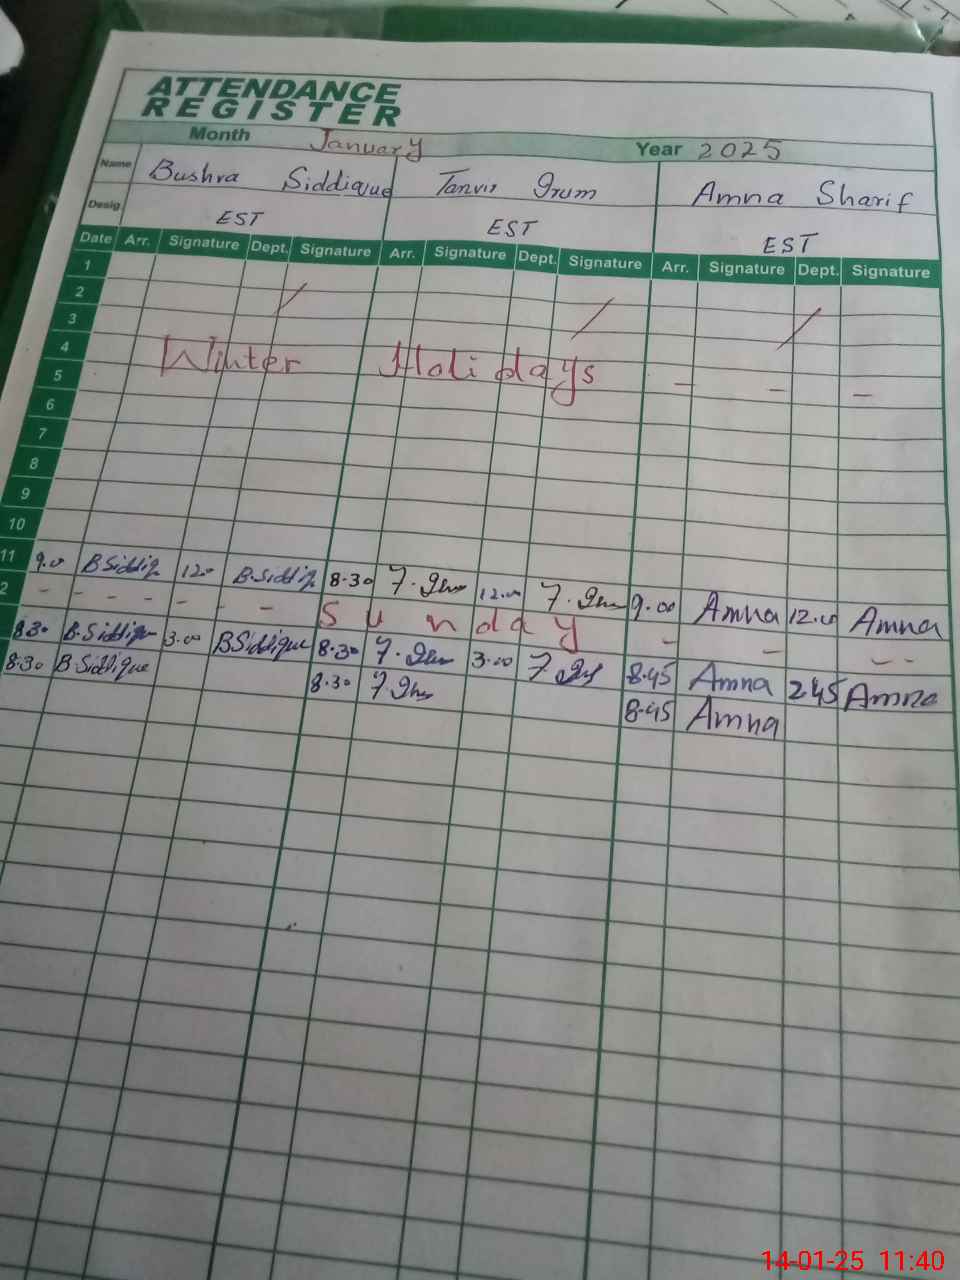 ATTENDANCE
REGISTER
Month January Year 2025
Name Bushra Siddique Tanvir Irum Amna Sharif
Desig. EST EST EST
Date Arr. Signature Dept. Signature Arr. Signature Dept. Signature Arr. Signature Dept. Signature
1
2
3
4 Winter Holidays
5 - - -
6
7
8
9
10
11 9.00 B.Siddiq 12.0 B.Siddiq 8.30 T.Irum 12.00 T.Irum 9.00 Amna 12.00 Amna
2 - - - - - - Sunday - - - -
8.30 B.Siddique 3.00 BSiddique 8.30 T.Irum 3.00 8.45 Amna 2.45 Amna
8.30 B Siddique 8.30 T Irum 8.45 Amna
14-01-25 11:40